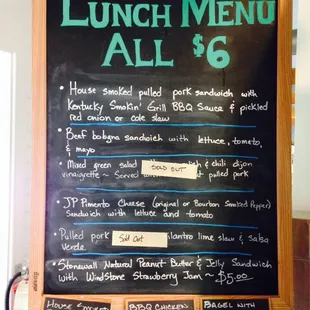 LUNCH MENU
ALL $6
• House smoked pulled pork sandwich with
Kentucky Smokin' Grill BBQ Sauce & pickled
red onion or cole slaw
• Beef bologna sandwich with lettuce, tomato,
& mayo
• Mixed green salad SOLD OUT & chili dijon
vinaigrette ~ Served with pulled pork
• JP Pimento Cheese (original or Bourbon Smoked Pepper)
Sandwich with lettuce and tomato
• Pulled pork Sold Out cilantro lime slaw & salsa
verde
• Stonewall Natural Peanut Butter & Jelly Sandwich
with WindStone Strawberry Jam ~ $5.00
HOUSE SMOKED
BBQ CHICKEN
BAGEL WITH